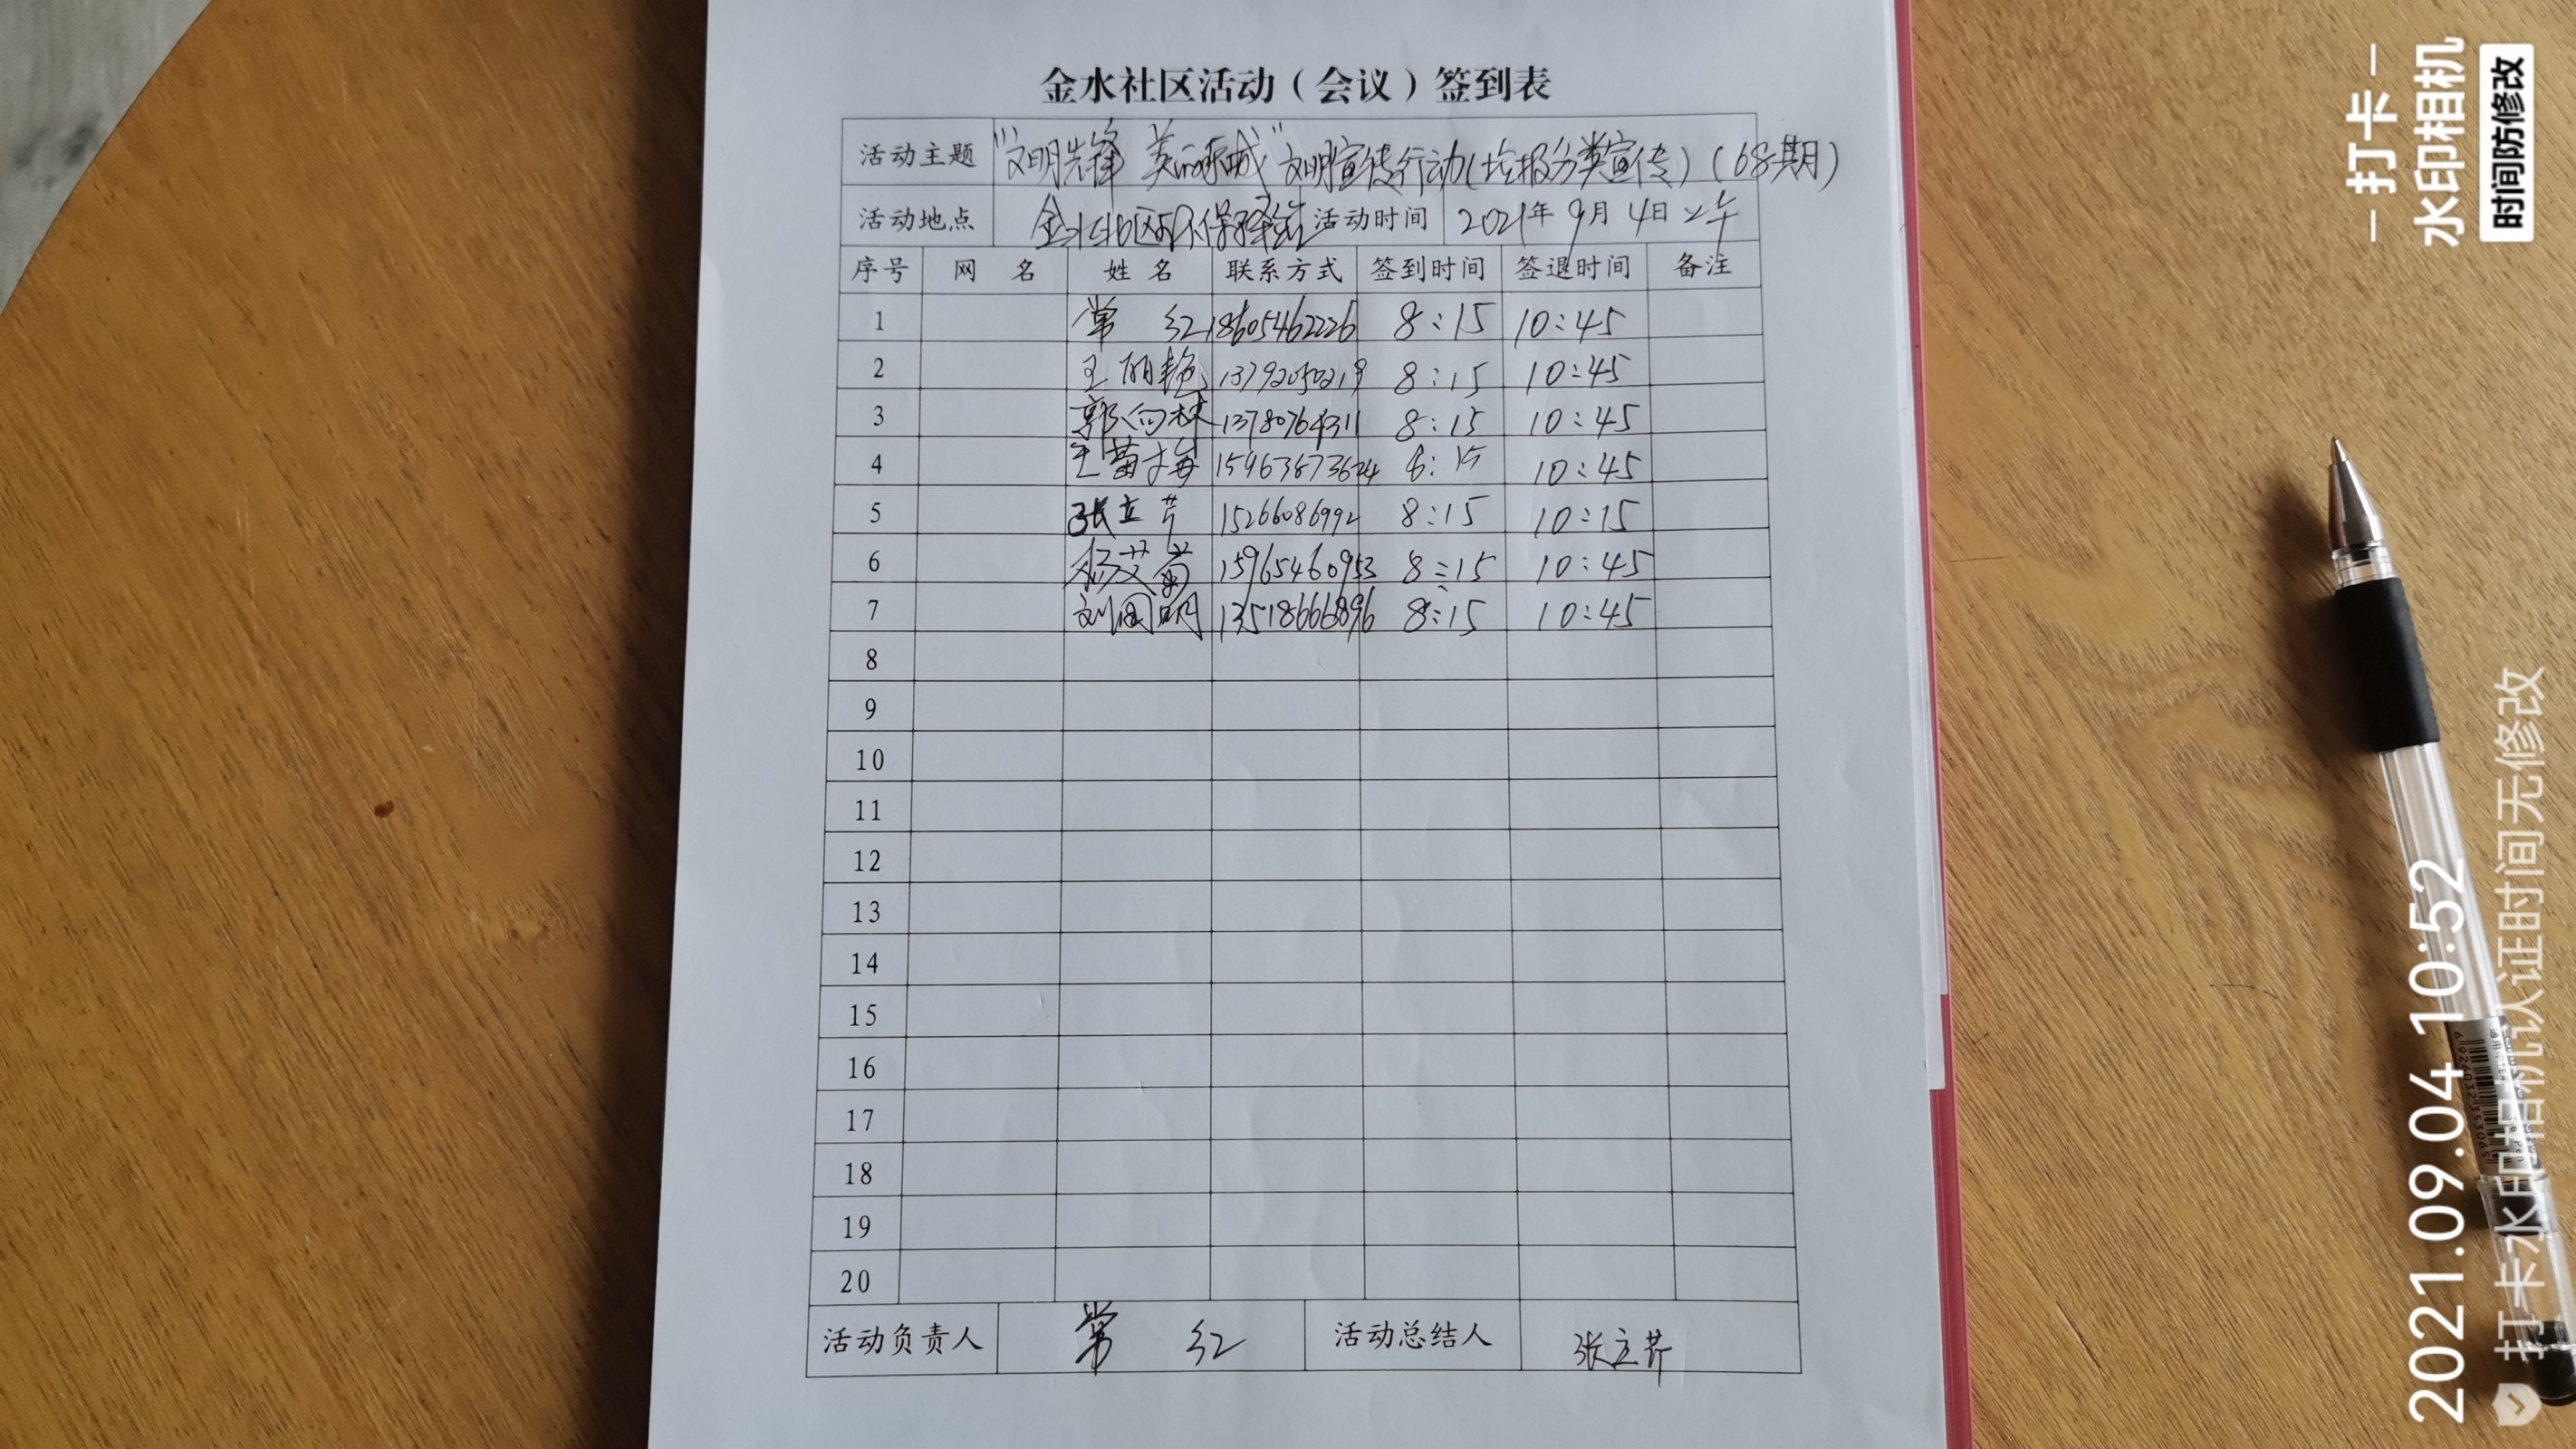 金水社区活动（会议）签到表
活动主题 "文明先锋 美丽东城"文明宣传行动(垃圾分类宣传)(68期)
活动地点 金水社区环保驿站 活动时间 2021年9月4日上午
序号 网 名 姓 名 联系方式 签到时间 签退时间 备注
1 常 红 18605462226 8:15 10:45
2 王丽艳 13792050219 8:15 10:45
3 郭向林 13780764311 8:15 10:45
4 王苗梅 15963873624 8:15 10:45
5 张立芹 15266086992 8:15 10:15
6 杨艾菊 15965460953 8:15 10:45
7 刘国明 13518666896 8:15 10:45
8
9
10
11
12
13
14
15
16
17
18
19
20
活动负责人 常 红 活动总结人 张立芹
打卡
水印相机
时间防修改
2021.09.04 10:52
打卡水印相机认证时间无修改